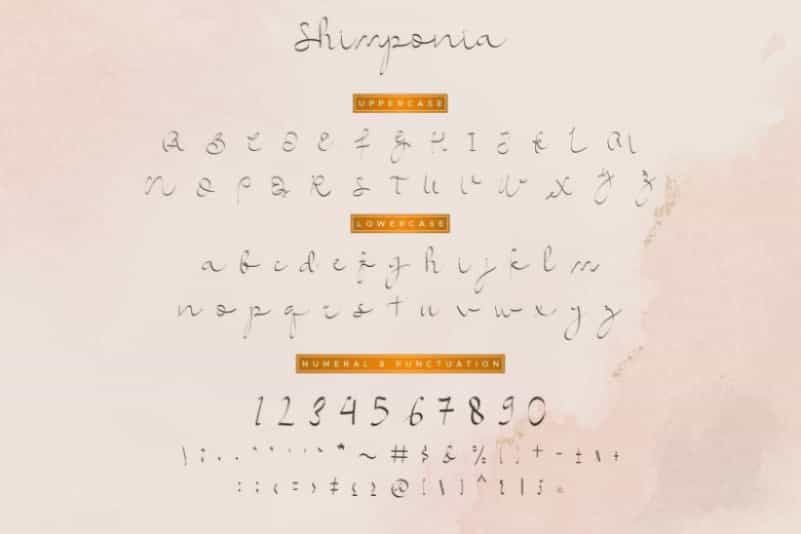 Shimponia
UPPERCASE
A B C D E F G H I J K L M
N O P Q R S T U V W X Y Z
LOWERCASE
a b c d e f g h i j k l m
n o p q r s t u v w x y z
NUMERAL & PUNCTUATION
1 2 3 4 5 6 7 8 9 0
~ # $ & % ( ) + - ±
@ [ \ ] ^ { | }